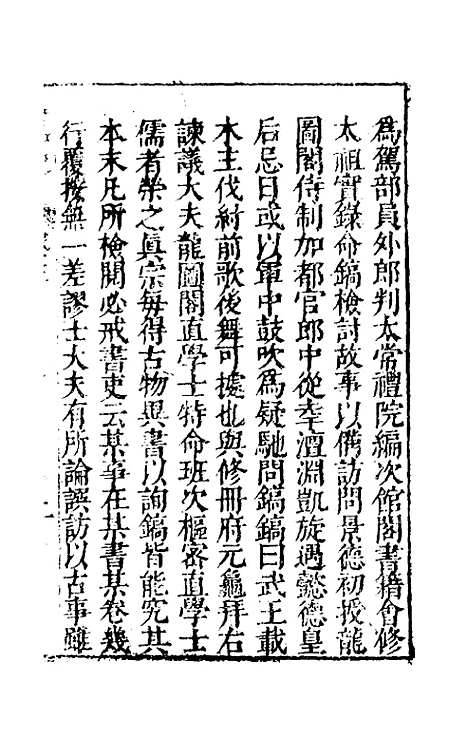 為駕部員外郎判太常禮院編次館閣書籍會修
太祖實錄命鎬檢討故事以備訪問景德初授龍
圖閣待制加都官郎中從幸澶淵凱旋遇懿德皇
后忌日或以軍中鼓吹為疑馳問鎬鎬曰武王載
木主伐紂前歌後舞可據也與修冊府元龜拜右
諫議大夫龍圖閣直學士特命班次樞密直學士
儒者榮之真宗每得古物異書以詢鎬皆能究其
本末凡所檢閱必戒書吏云某事在某書某卷幾
行覆按無一差謬士大夫有所論譔訪以古事雖